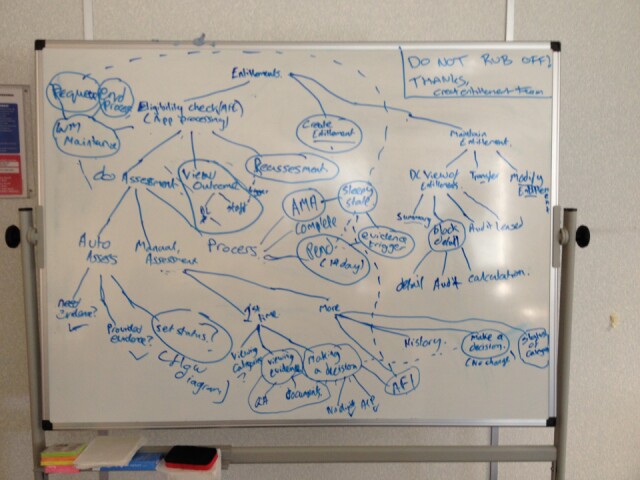 DO NOT RUB OFF!
THANKS,
create entitlement team
Entitlements
Request
Pend
Process
Eligibility check/APC
(App processing)
WTM
Maintain
Create
Entitlement
Maintain
Entitlement
Reassessment
do Assessment
View
Outcome
Staff
DL View of
Entitlements
Transfer
Modify
AMA
Sleepy
State
Complete
Summary
Block
detail
Audit
Process
Pend
(14 day)
evidence
trigger
Auto
Assess
Manual
Assessment
detail
Audit
calculation.
Need
Evidence?
Provided
evidence?
Set status?
(flow
diagram)
1st
time
More
History
Make a
decision
(no change)
Viewing
Category
?
Viewing
evidence
Making
a decision
QA
documents
AFI